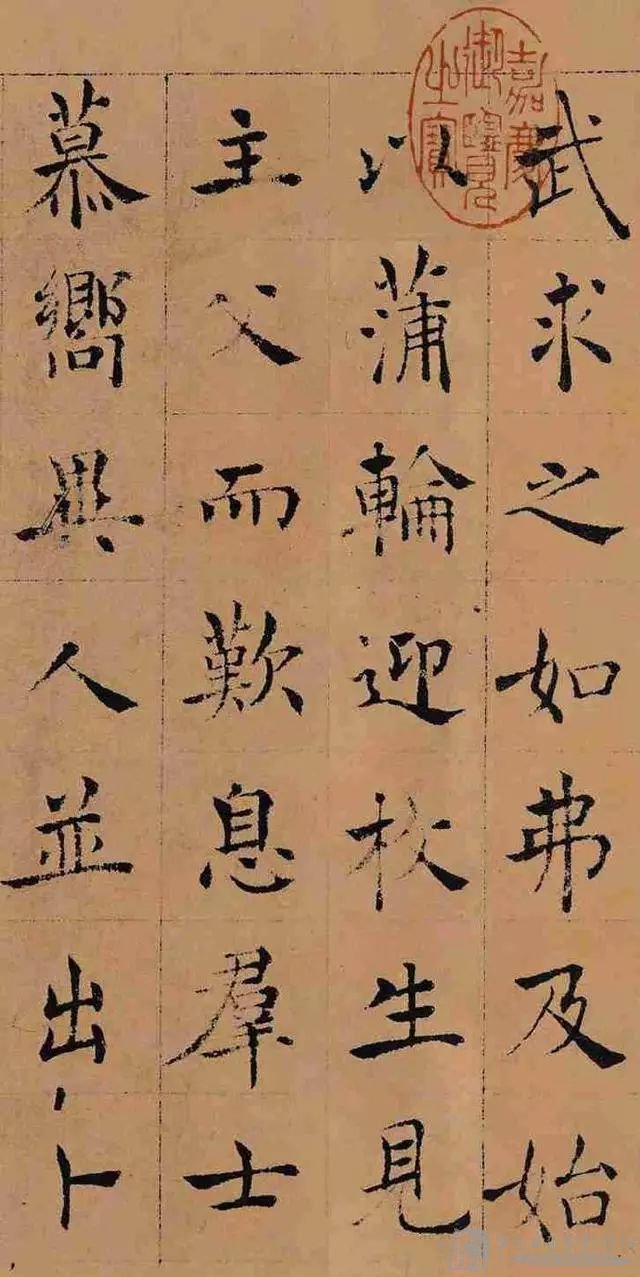 武求之如弗及始
以蒲輪迎枚生見
主父而歎息羣士
慕嚮異人並出卜
嘉慶
御覽
之寶